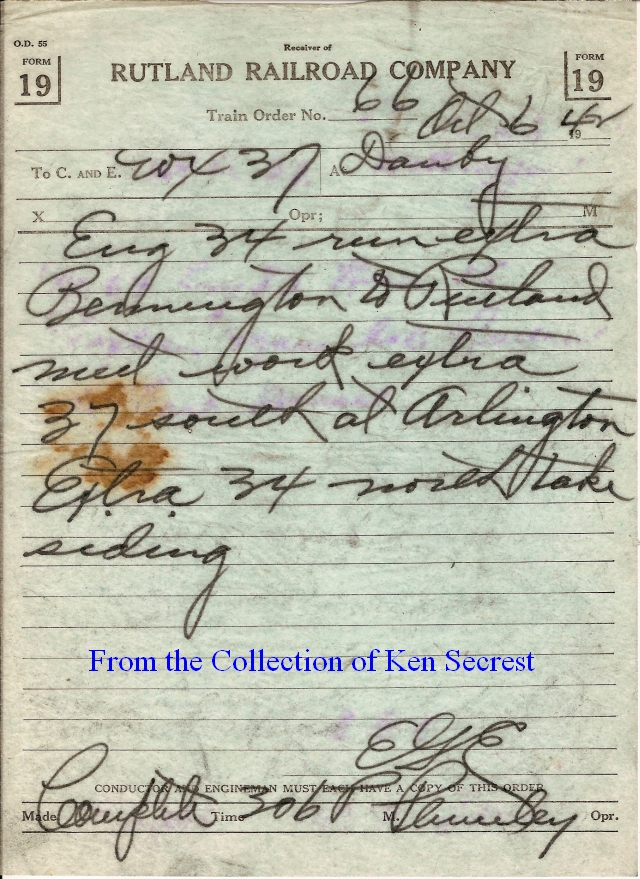 O.D. 55
Receiver of
FORM 19
RUTLAND RAILROAD COMPANY
FORM 19
Train Order No. 66
Oct 6 1942
To C. AND E. WX 37 At Danby
X Opr; M
Eng 34 run extra
Bennington to Rutland
meet work extra
37 south at Arlington
Extra 34 north take
siding
From the Collection of Ken Secrest
CONDUCTOR AND ENGINEMAN MUST EACH HAVE A COPY OF THIS ORDER
Made Complete Time 306 P M. Opr.